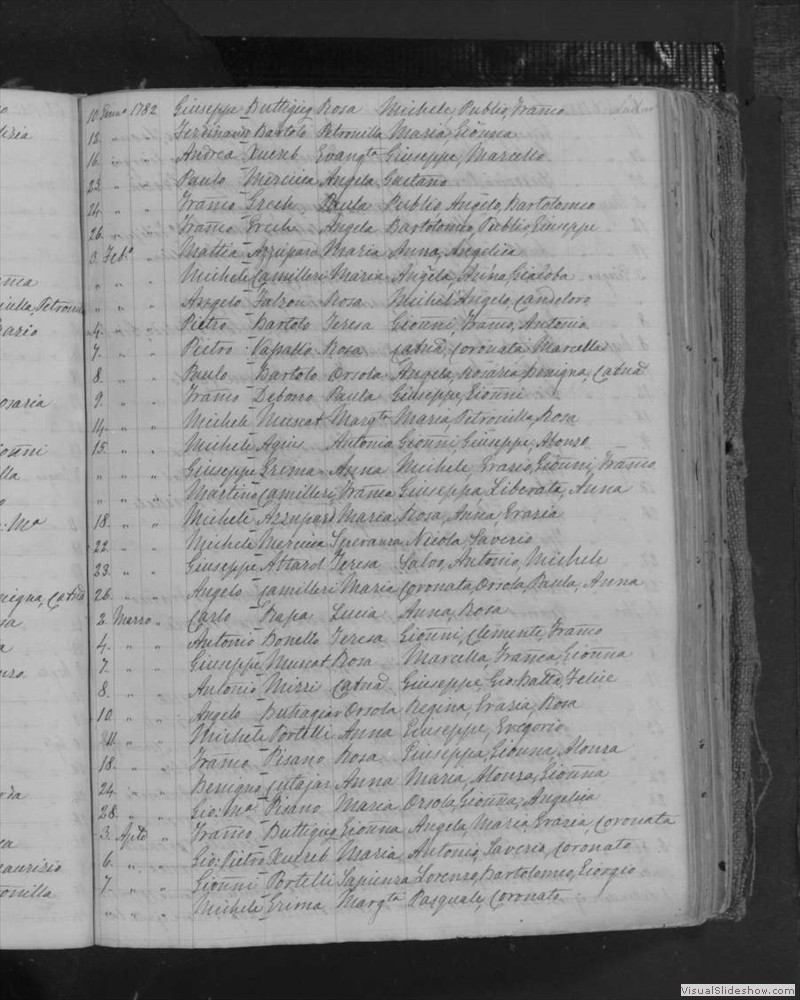 10 Genno 1782 Giuseppe Buttigieg Rosa Michele, Publio, Franco
12. " " Ferdinando Bartolo Petronilla Maria, Gionna
16. " " Andrea Xuereb Evangta Giuseppe, Marcello
23. " " Paulo Mercieca Angela Gaetano
24. " " Franco Grech Paula Publio, Angelo, Bartolomeo
26. " " Franco Grech Angela Bartolomeo, Publio, Giuseppe
3. Feb° " Mattia Azzupard Maria Anna, Angelica
" " " Michele Camilleri Maria Angela, Anna, Giacoba
" " " Angelo Falzon Rosa Michel'Angelo, Candeloro
4. " " Pietro Bartolo Teresa Gionni, Franco, Antonio
7. " " Pietro Vassallo Rosa Catnā, Coronata, Marcella
8. " " Paulo Bartolo Orsola Angela, Rosaria, Benigna, Catnā
9. " " Franco Debono Paula Giuseppe, Gionni
14. " " Michele Muscat Margta Maria, Petronilla, Rosa
15. " " Michele Agius Antonia Gionni, Giuseppe, Alonzo
" " " Giuseppe Grima Anna Michele, Grazio, Gionni, Franco
" " " Martino Camilleri Franca Giuseppa, Liberata, Anna
18. " " Michele Azzupard Maria Rosa, Anna, Grazia
22. " " Michele Mercieca Speranza Nicola, Saverio
23. " " Giuseppe Attard Teresa Salvo, Antonio, Michele
26. " " Angelo Camilleri Maria Coronata, Orsola, Paula, Anna
2. Marzo " Carlo Rapa Lucia Anna, Rosa
4. " " Antonio Bonello Teresa Gionni, Clemente, Franco
7. " " Giuseppe Muscat Rosa Marcella, Franca, Gionna
8. " " Antonio Mizzi Catnā Giuseppe, Gio:Batta, Felice
10. " " Angelo Buttagiar Orsola Regina, Grazia, Rosa
11. " " Michele Portelli Anna Giuseppe, Gregorio
18. " " Franco Pisano Rosa Giuseppa, Gionna, Alonza
24. " " Benigno Cutajar Anna Maria, Alonza, Gionna
28. " " Gio: Ma Pisano Maria Orsola, Gionna, Angelica
3. Aple " Franco Buttigieg Gionna Angela, Maria, Grazia, Coronata
6. " " Gio: Pietro Xuereb Maria Antonio, Saverio, Coronato
7. " " Gionni Portelli Sapienza Lorenzo, Bartolomeo, Giorgio
" " " Michele Grima Margta Pasquale, Coronato
VisualSlideshow.com